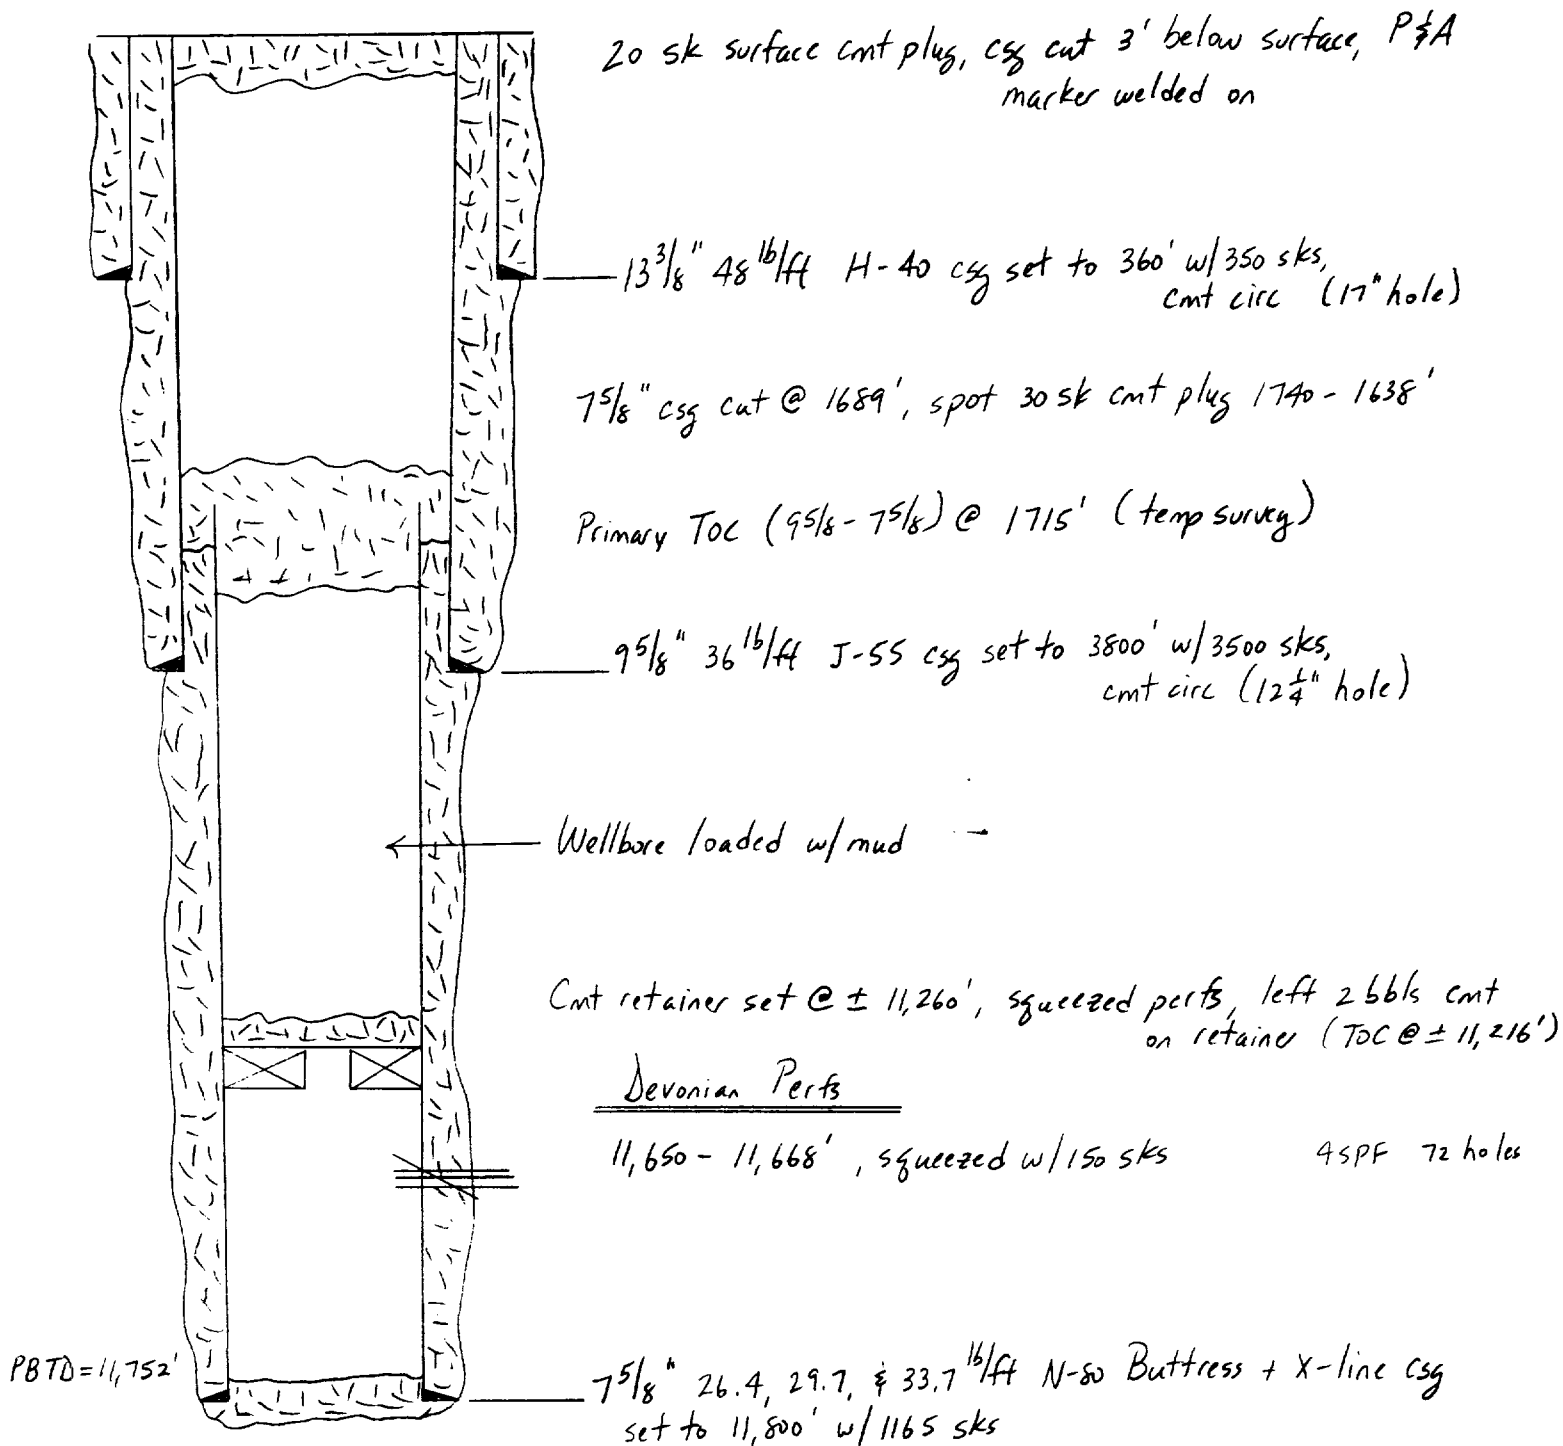 20 sk surface cmt plug, csg cut 3' below surface, P&A
marker welded on
13 3/8" 48 lb/ft H-40 csg set to 360' w/350 sks,
cmt circ (17" hole)
7 5/8" csg cut @ 1689', spot 30 sk cmt plug 1740 - 1638'
Primary TOC (9 5/8 - 7 5/8) @ 1715' (temp survey)
9 5/8" 36 lb/ft J-55 csg set to 3800' w/3500 sks,
cmt circ (12 1/4" hole)
Wellbore loaded w/mud
Cmt retainer set @ ± 11,260', squeezed perfs, left 2 bbls cmt
on retainer (TOC @ ± 11,216')
Devonian Perfs
11,650 - 11,668', squeezed w/150 sks 4SPF 72 holes
PBTD = 11,752'
7 5/8" 26.4, 29.7, & 33.7 lb/ft N-80 Buttress + X-line csg
set to 11,800' w/1165 sks